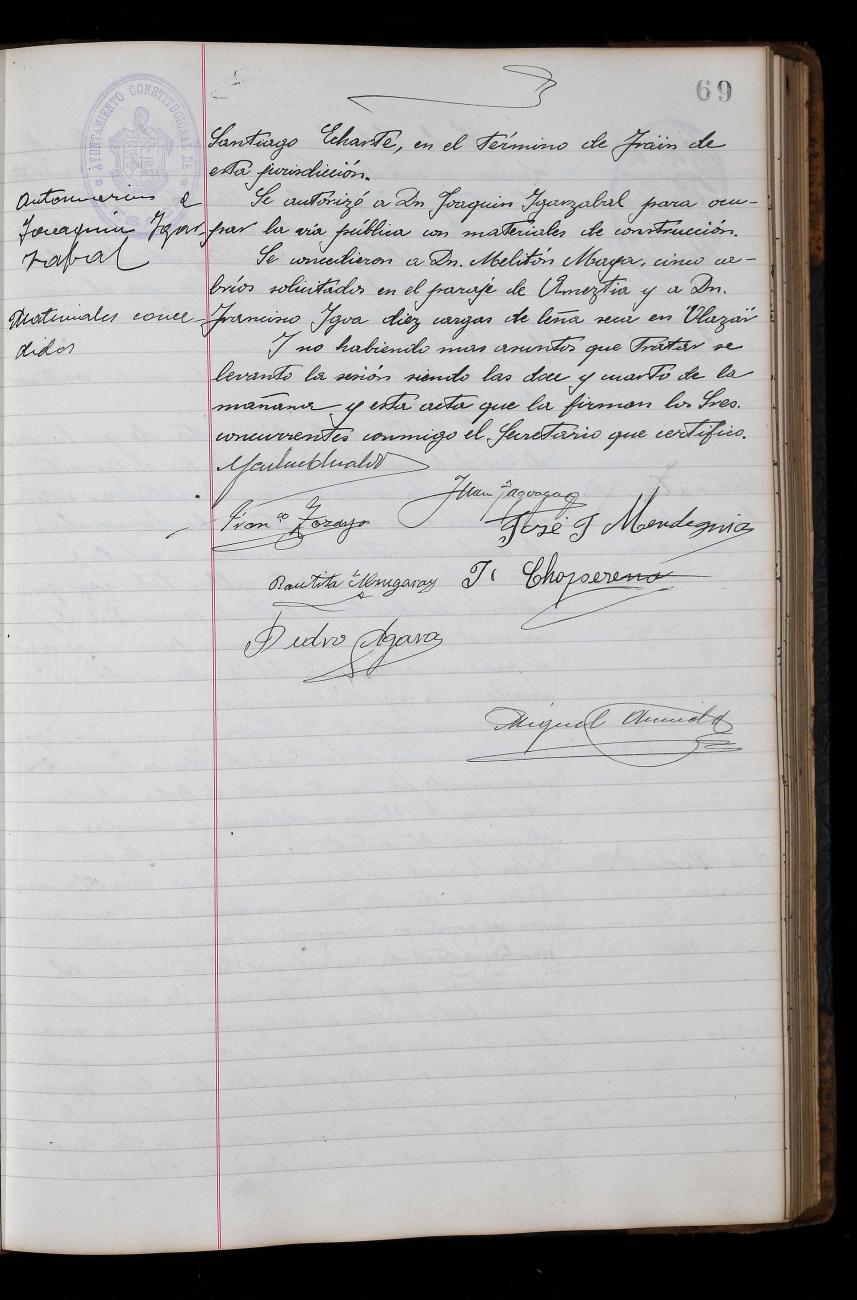 69
AYUNTAMIENTO CONSTITUCIONAL DE
Santiago Echarte, en el término de Frain de
esta jurisdicción.
Autorización a
Joaquin Igar-
zabal
Se autorizó a Dn Joaquin Igarzabal para ocu-
par la via pública con materiales de construcción.
Materiales conce-
didos
Se concedieron a Dn. Melitón Maya, cinco ca-
brios solicitados en el paraje de Ameztia y a Dn.
Francisco Igoa diez cargas de leña seca en Olazar
Y no habiendo mas asuntos que tratar se
levanto la sesión siendo las doce y cuarto de la
mañana y esta acta que la firman los Sres.
concurrentes conmigo el Secretario que certifico.
Juan
Fran.co
José J Mendeguia
Bautista
J. Choperena
Pedro Agara
Miguel